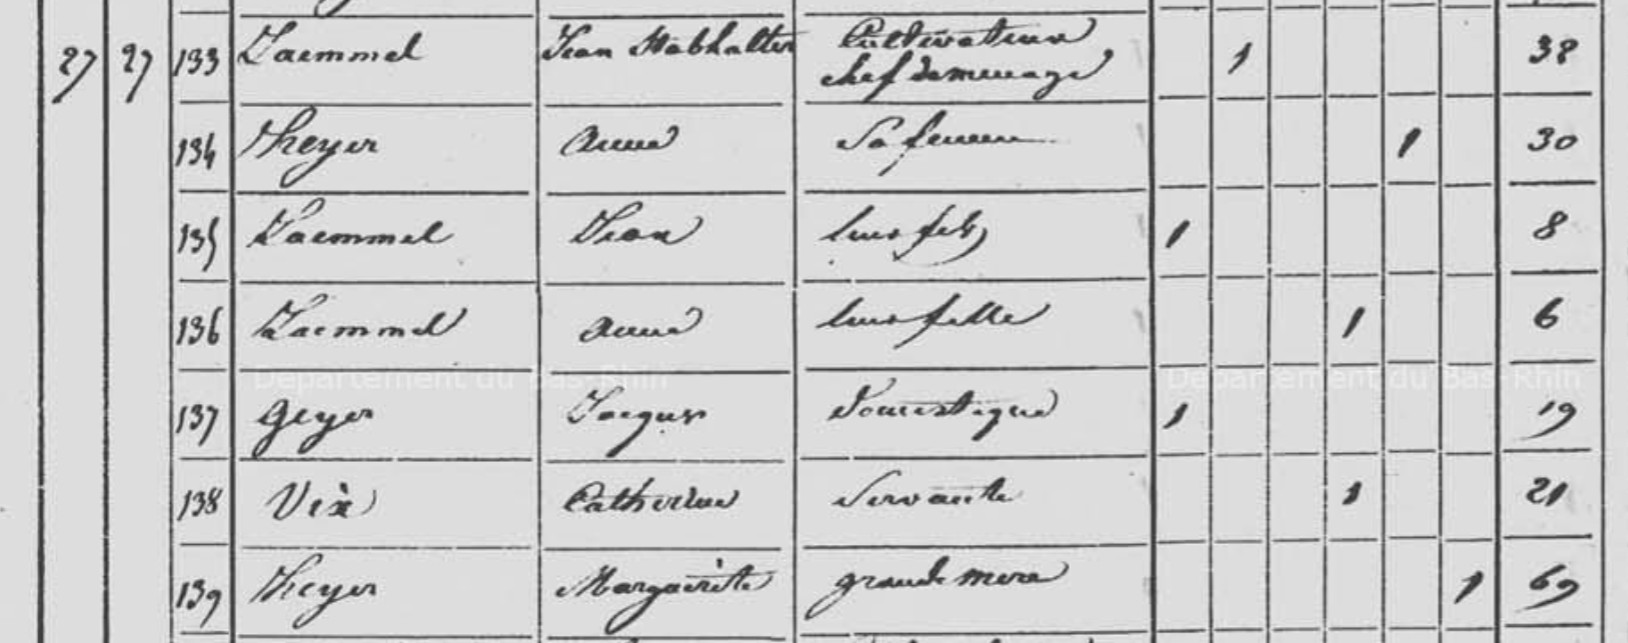 27 27 133 Laemmel Jean Stabhalter Cultivateur 1 38
chef de menage
134 Heyer Anna Sa femme 1 30
135 Laemmel Jean leur fils 1 8
136 Laemmel Anna leur fille 1 6
Département du Bas-Rhin Département du Bas-Rhin
137 Geyer Jacques Domestique 1 19
138 Vix Catherine Servante 1 21
139 Heyer Marguerite grande mere 1 69